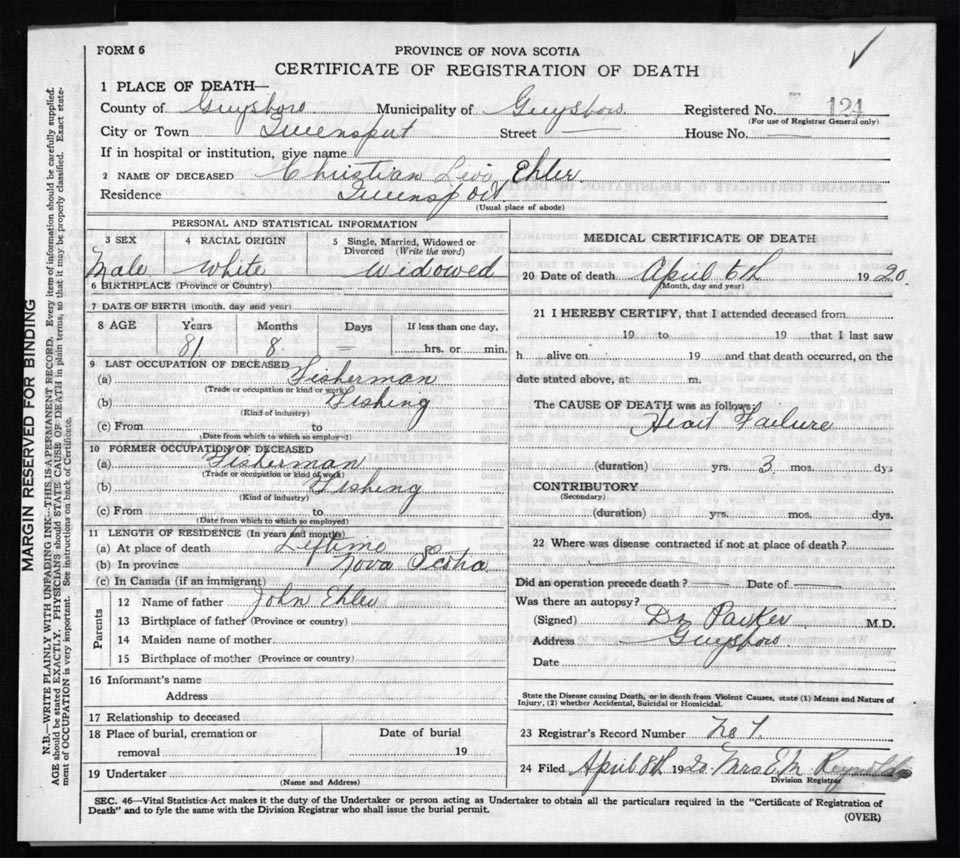 FORM 6
PROVINCE OF NOVA SCOTIA
CERTIFICATE OF REGISTRATION OF DEATH
1 PLACE OF DEATH—
County of Guysboro Municipality of Guysboro Registered No. 124
(For use of Registrar General only)
City or Town Queensport Street — House No.
If in hospital or institution, give name
2 NAME OF DECEASED Christian Levi Ehler
Residence Queensport
(Usual place of abode)
PERSONAL AND STATISTICAL INFORMATION
3 SEX 4 RACIAL ORIGIN 5 Single, Married, Widowed or Divorced (Write the word)
Male White Widowed
6 BIRTHPLACE (Province or Country)
7 DATE OF BIRTH (month, day and year)
8 AGE Years Months Days If less than one day,
81 8 — hrs. or min.
9 LAST OCCUPATION OF DECEASED
(a) Fisherman
(Trade or occupation or kind or work)
(b) Fishing
(Kind of industry)
(c) From to
(Date from which to which so employed)
10 FORMER OCCUPATION OF DECEASED
(a) Fisherman
(Trade or occupation or kind of work)
(b) Fishing
(Kind of industry)
(c) From to
(Date from which to which so employed)
11 LENGTH OF RESIDENCE (In years and months)
(a) At place of death Lifetime
(b) In province Nova Scotia
(c) In Canada (if an immigrant)
Parents
12 Name of father John Ehler
13 Birthplace of father (Province or country)
14 Maiden name of mother
15 Birthplace of mother (Province or country)
16 Informant's name
Address
17 Relationship to deceased
18 Place of burial, cremation or Date of burial
removal 19
19 Undertaker
(Name and Address)
MEDICAL CERTIFICATE OF DEATH
20 Date of death April 6th 1920
(Month, day and year)
21 I HEREBY CERTIFY, that I attended deceased from
19 to 19 that I last saw
h alive on 19 and that death occurred, on the
date stated above, at m.
The CAUSE OF DEATH was as follows:
Heart Failure
(duration) yrs. 3 mos. dys
CONTRIBUTORY
(Secondary)
(duration) yrs. mos. dys.
22 Where was disease contracted if not at place of death?
Did an operation precede death? — Date of —
Was there an autopsy?
(Signed) Dr Parker M.D.
Address Guysboro
Date
State the Disease causing Death, or in death from Violent Causes, state (1) Means and Nature of
Injury, (2) whether Accidental, Suicidal or Homicidal.
23 Registrar's Record Number No 7.
24 Filed April 8th 1920 Mrs E M Reynolds
Division Registrar
SEC. 46—Vital Statistics Act makes it the duty of the Undertaker or person acting as Undertaker to obtain all the particulars required in the "Certificate of Registration of
Death" and to fyle the same with the Division Registrar who shall issue the burial permit.
(OVER)
MARGIN RESERVED FOR BINDING
N.B.—WRITE PLAINLY WITH UNFADING INK—THIS IS A PERMANENT RECORD. Every item of information should be carefully supplied.
AGE should be stated EXACTLY. PHYSICIANS should STATE CAUSE OF DEATH in plain terms, so that it may be properly classified. Exact state-
ment of OCCUPATION is very important. See instructions on back of Certificate.